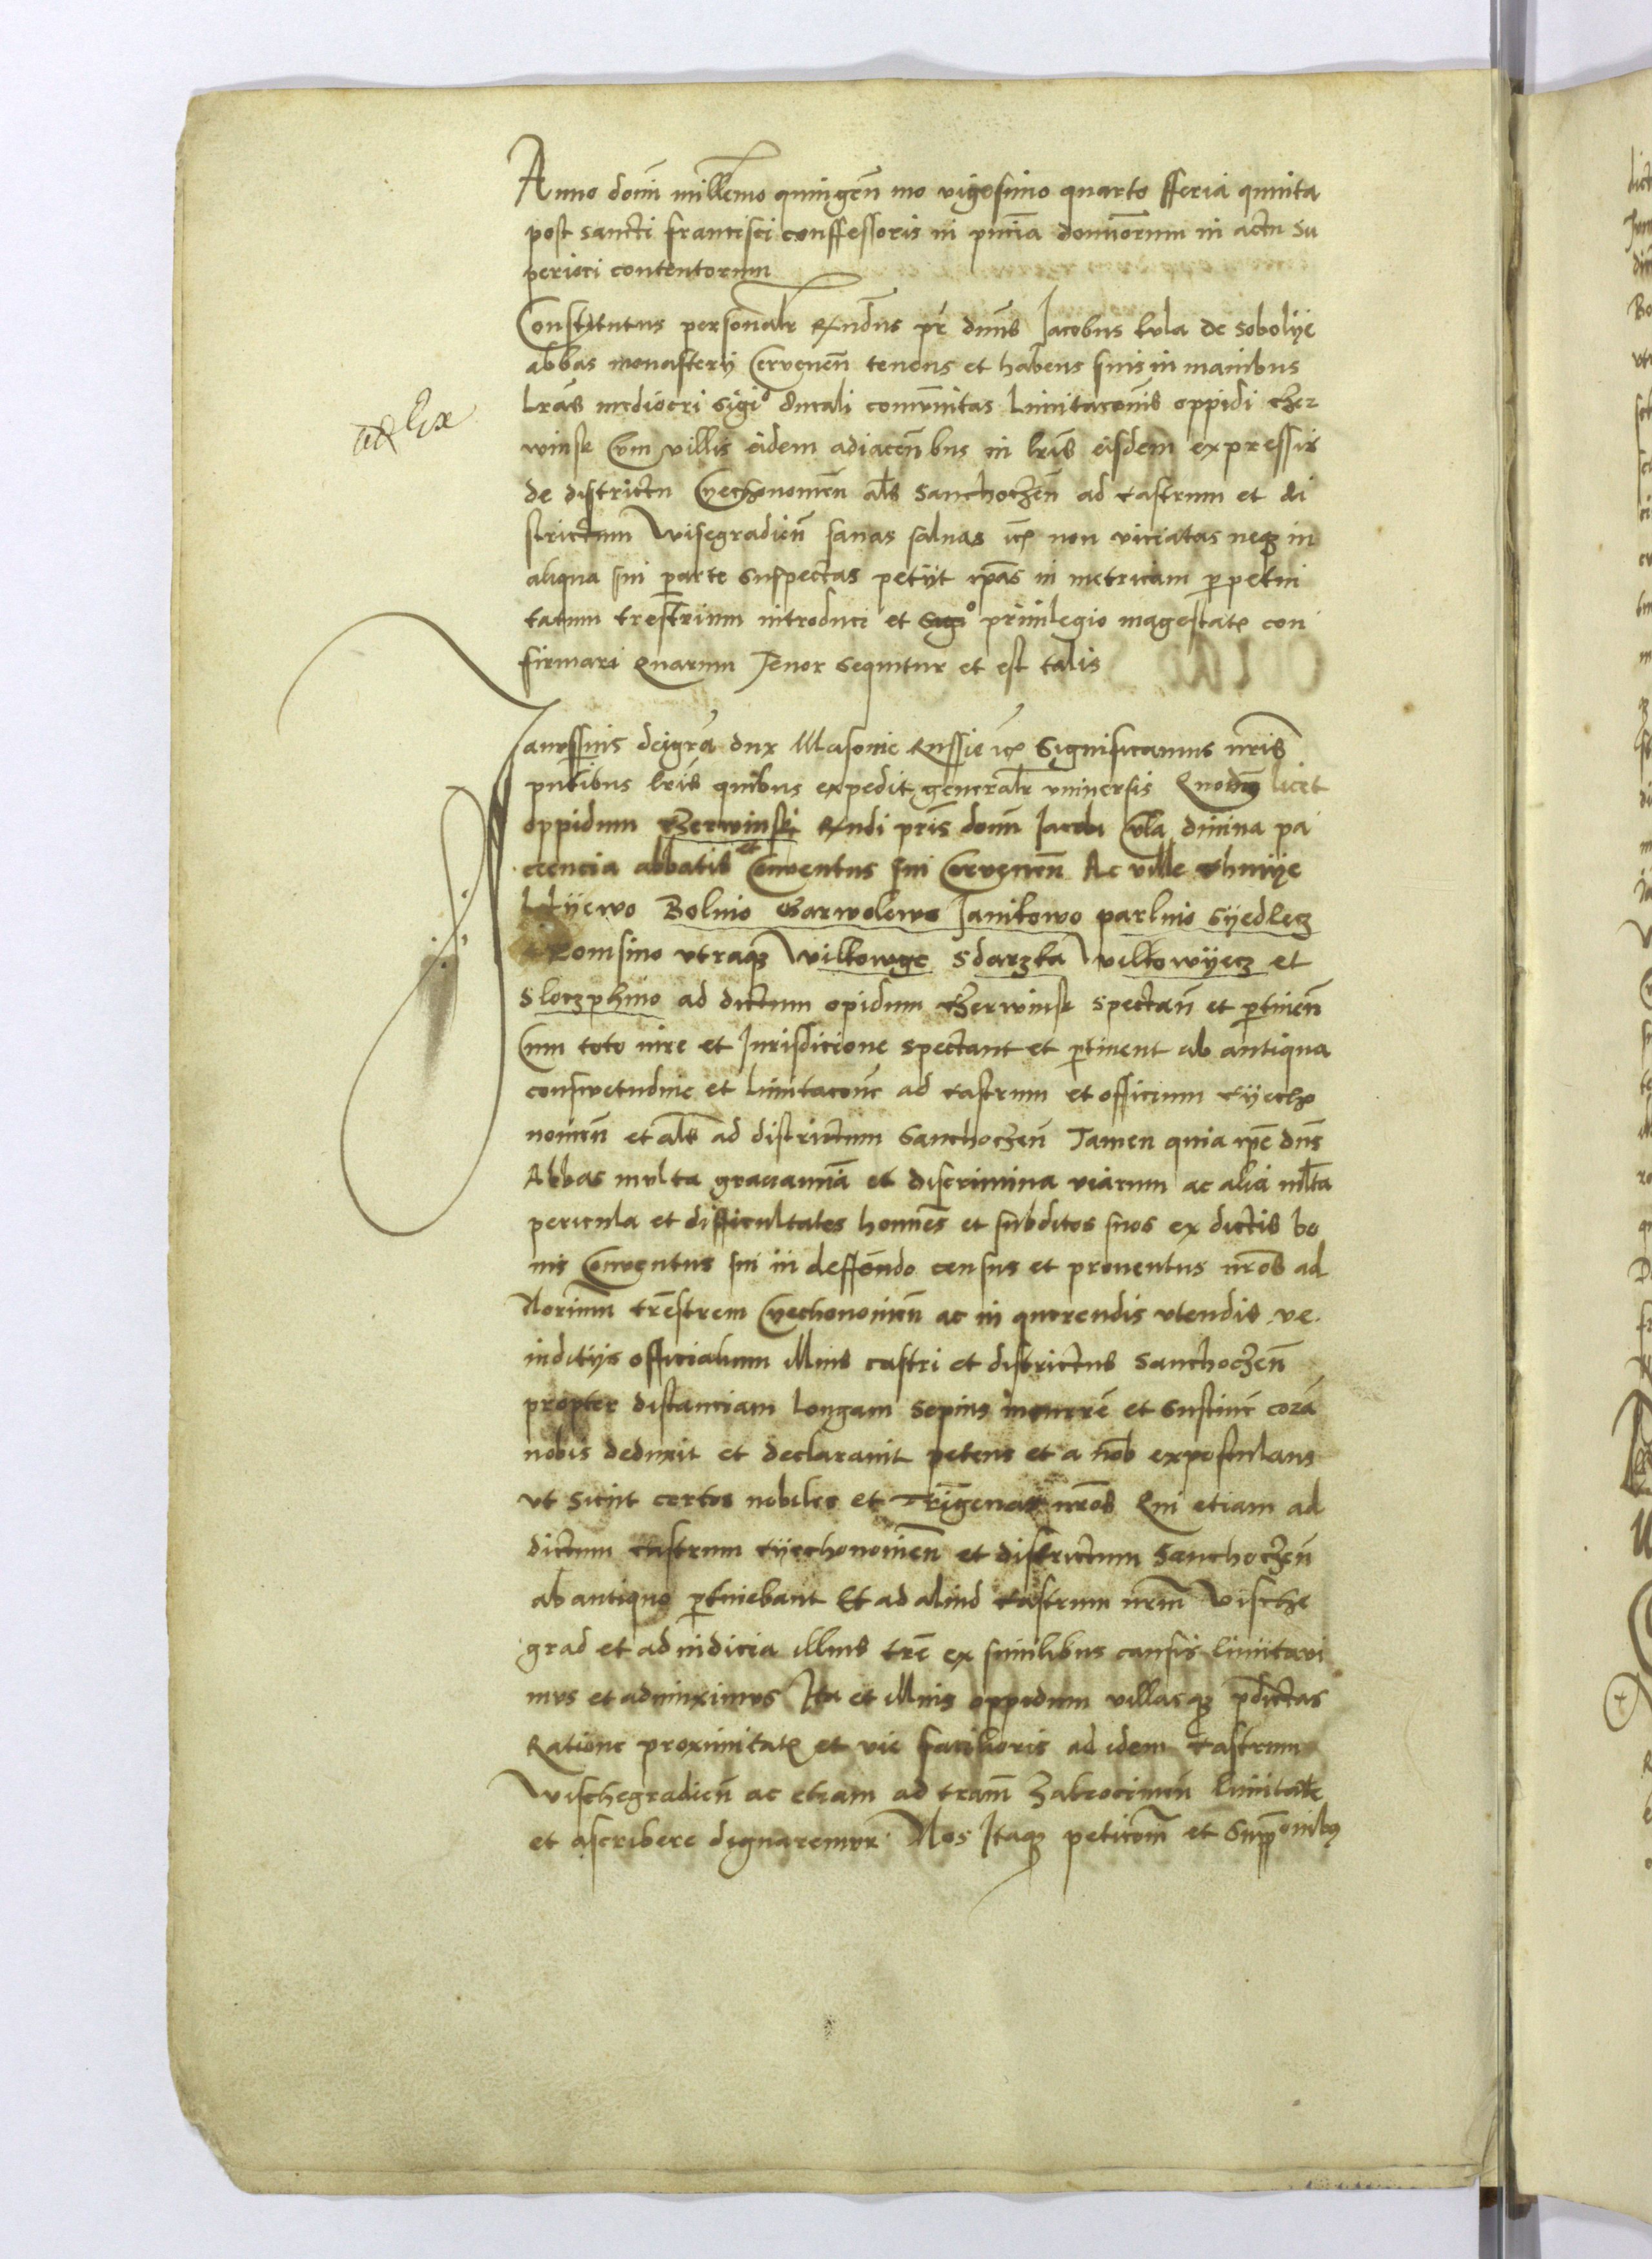 Anno domī millemo quingen̄ mo vigesimo quarto fferia quinta
post sancti francisci conffessoris in pn̄cia domīorum in actu su
perioci contentorum
Constitutus personalr Rn̄dus pr̄ dnūs Jacobus kula de sobolÿe
abbas monasterÿ Cervenen̄ tenens et habens suis in manibus
Lrās mediocri sigio ducali com̄unitas Limitacōnis oppidi cher
winsk Cum villis eidem adiacen̄bus in lrīs eisdem expressis
de districtu Cyechonomen̄ als̄ Sanchoczen̄ ad castrum et di
strictum Wisegradien̄ sanas saluas ic̄ non viciatas neqʒ in
aliqua sui parte suspectas petÿt ip̄as in metricam perpetui
tatum trestrium introduci et priuilegio magestatꝭ con
firmari Quarum Tenor sequitur et est talis
Janussius deigrā dux Masouie Russie ic̄ Significamus nrīs
pn̄tibus lrīs quibus expedit generalr vniuersis Quomō licet
oppidum Cherwinski Rn̄di prīs domī Jacobi kula diuina pa
ciencia abbatis et Conuentus sui Cervenen̄ Ac ville
Bolino Garwolewo Janikowo parlino Syedlecz
Komsino vtraqʒ Wilkowye Sdarzka Wilkowÿecz et
Sloczphino ad dictum opidum Cherwinsk spectan̄ et ptinen̄
Cum toto iure et Jurisdicione spectant et ptinent ab antiqua
conswetudine et limitacone ad castrum et officium cÿecho
nomen̄ et als̄ ad districtum Sanchoczen̄ Tamen quia ip̄e dn̄s
Abbas multa grauamīa et discrimina viarum ac alia mlta
pericula et difficultates homīes et subditos suos ex dictis bo
nis Conventus sui in defferendo census et prouentus nrōs ad
Norium trestrem Cyechonomen̄ ac in querendis vtendis ve
inditÿs officialium illius castri et districtus Sanchoczen̄
propter distanciam longam sepius incurre et sustine corā
nobis deduxit et declarauit petens et a nob expostulans
vt sicut certos nobiles et Trīgenas nrōs Qui etiam ad
dictum castrum cÿechonomen̄ et districtum Sanchoczen̄
ab antiquo ptinebant Et ad aliud castrum nrm̄ Vische
grad et ad iudicia illius tre ex similibus causis limitaui
mus et adiunximus Ita et illius oppidum villasqʒ pdictas
Ratione proximitatꝭ et vie facilioris ad idem castrum
Wischegradien̄ ac etiam ad tram̄ Zakrocimen̄ limitare
et ascribere dignaremur Nos Itaqʒ peticom̄ et